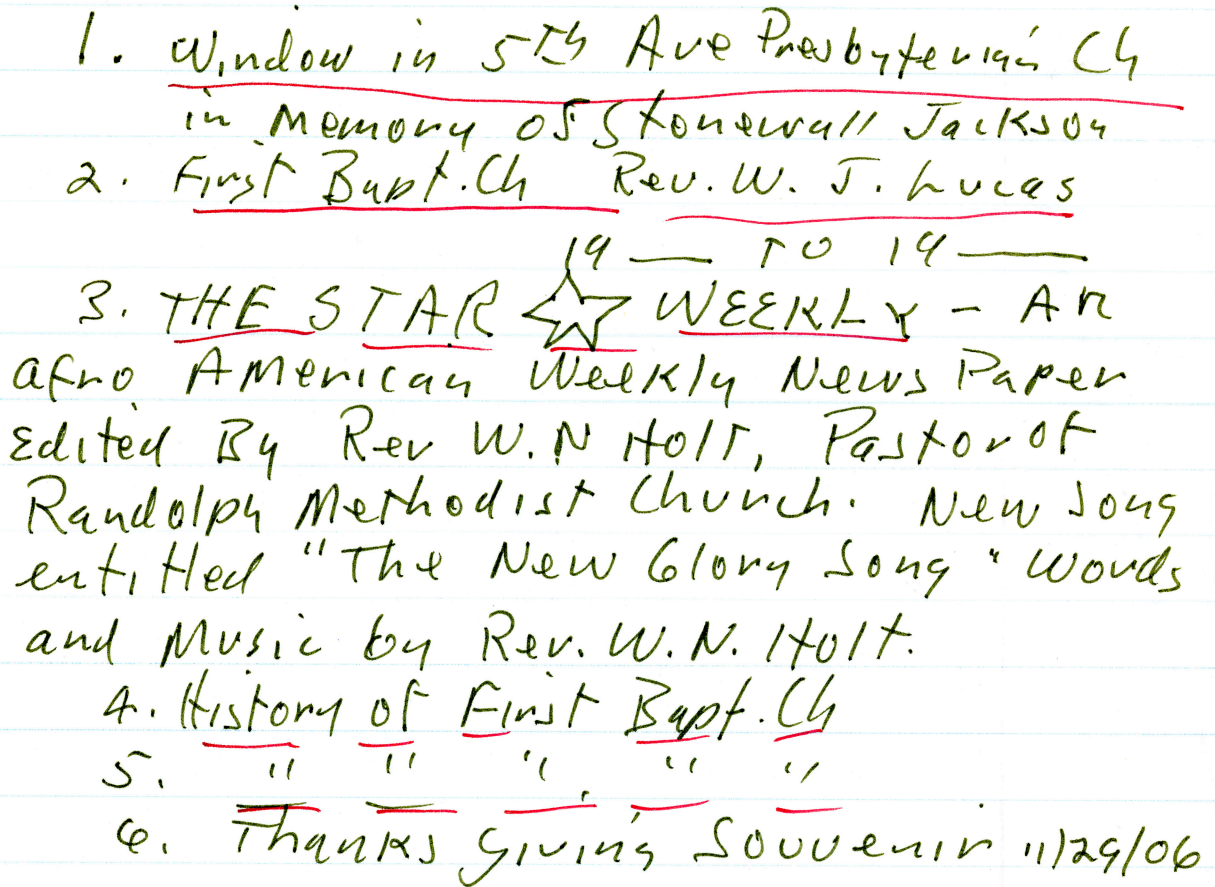 1. Window in 5th Ave Presbyterian Ch
in Memory of Stonewall Jackson
2. First Bapt. Ch Rev. W. J. Lucas
19 — TO 19 —
3. THE STAR ☆ WEEKLY - An
afro American Weekly News Paper
Edited By Rev W. N Holt, Pastor of
Randolph Methodist Church. New Song
entitled "The New Glory Song" Words
and Music by Rev. W. N. Holt.
4. History of First Bapt. Ch
5. " " " " "
6. Thanks giving Souvenir 11/29/06